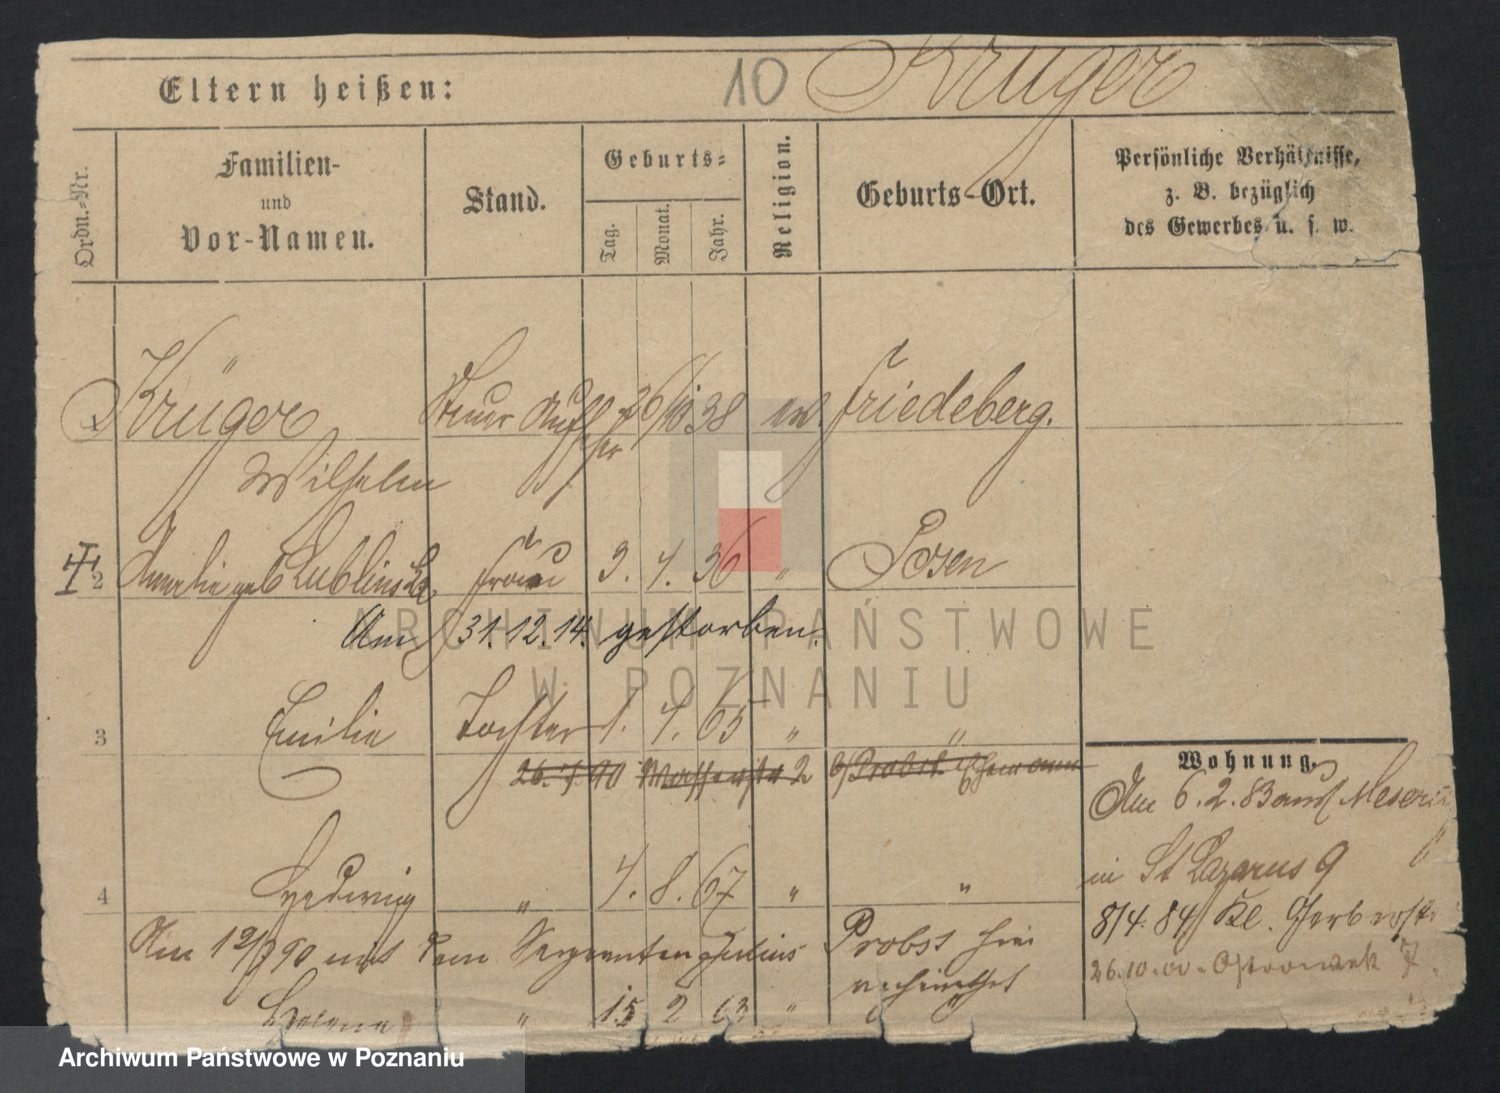 Eltern heißen: 10 Krüger
Ordn.-Nr.
Familien-
und
Vor-Namen.
Stand.
Geburts-
Tag.
Monat.
Jahr.
Religion.
Geburts-Ort.
Persönliche Verhältnisse,
z. B. bezüglich
des Gewerbes u. s. w.
1 Krüger Steuer Aufse 26/10 38 ev Friedeberg.
her
Wilhelm
2 Amalie geb Lublinska Frau 3. 4. 36 " Posen
Am 31.12.14. gestorben.
3 Emilie Tochter 1. 4. 65 " "
Wohnung.
Am 6.2.83 aus Meseritz
4 Hedwig " 4. 8. 67 " "
in St Lazarus 9
8/4.84 Kl. Gerberstr
Am 12/ 90 mit dem Sergeanten Julius Probst hier
verheirathet
26.10.00 Ostrowek 7.
Helene " 15 2 63 "
ARCHIWUM PAŃSTWOWE
W POZNANIU
Archiwum Państwowe w Poznaniu